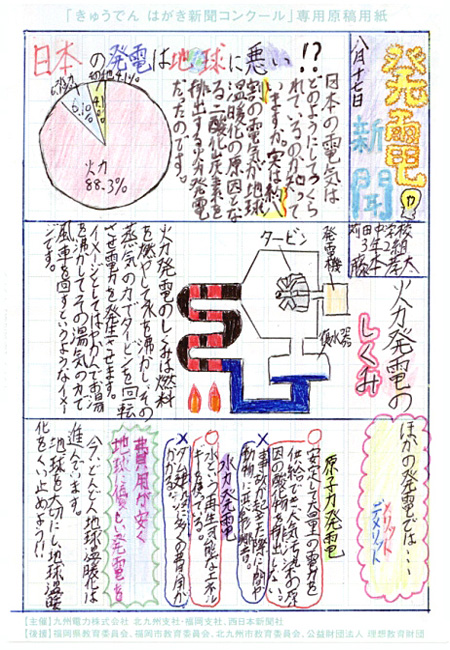 「きゅうでん はがき新聞コンクール」専用原稿用紙
発電新聞
八月十七日
苅田中学校
3年2組
日本の発電は地球に悪い!?
日本の電気は
どのようにしてつくら
れているのか知って
いますか。実は約八
割の電気が地球
温暖化の原因とな
る二酸化炭素を
排出するものだっ
たのです。
火力
88.3%
6.1%
火力発電の
しくみ
発電機
タービン
復水器
火力発電のしくみは燃料
を燃やして水を沸かし、その
蒸気の力でタービンを回転
させ電力を発生させます。
イメージとしてはやかんでお湯
を沸かしてその湯気の力で
風車を回すというようなイメー
ジです。
ほかの発電では・・・
メリット
デメリット
原子力発電
○安定して大量の電力を
供給でき、大気汚染の原
因の酸化物を排出しない
×事故が起きた際に人間や
動物に
水力発電
○水という再生可能なエネル
ギーを使っている。
×ダム建設に多くの費用が
かかる
費用が安く
地球に優しい発電を
今、どんどん地球温暖化は
進んでいます。
地球を大切にし、地球温暖
化をくい止めよう!!
【主催】九州電力株式会社 北九州支社・福岡支社、西日本新聞社
【後援】福岡県教育委員会、福岡市教育委員会、北九州市教育委員会、公益財団法人 理想教育財団